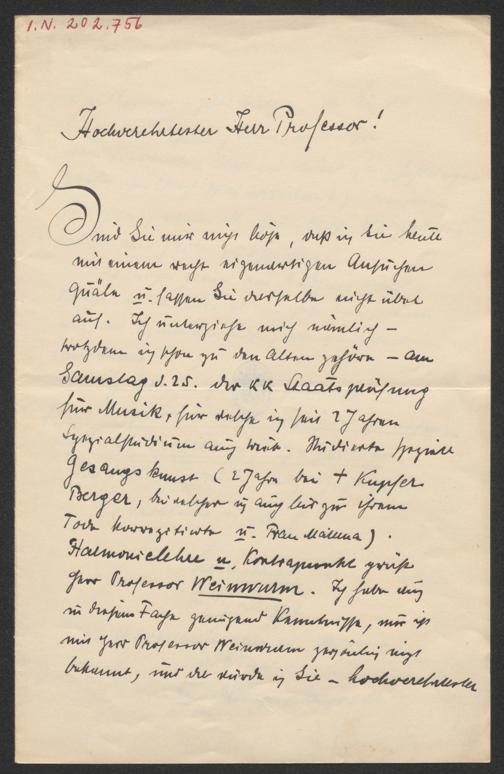 I.N. 202.756
Hochverehrtester Herr Professor!
Sind Sie mir nicht böse, daß ich Sie heute
mit einem recht eigenartigen Ansuchen
quäle u. fassen Sie dasselbe nicht übel
auf. Ich unterziehe mich nämlich –
trotzdem ich schon zu den Alten gehöre – am
Samstag d. 25. der k k Staatsprüfung
für Musik, für welche ich seit 2 Jahren
Spezialstudium auch treib. Studierte speziell
Gesangskunst (2 Jahre bei + Kupfer
Berger, bei welcher ich auch bis zu ihrem
Tode korrepetirte u. Frau Mallena).
Harmonielehre u. Kontrapunkt prüft
Herr Professor Weinwurm. Ich habe auch
in diesem Fache genügend Kenntnisse, nur ist
mir Herr Professor Weinwurm persönlich nicht
bekannt, und da würde ich Sie – hochverehrtester